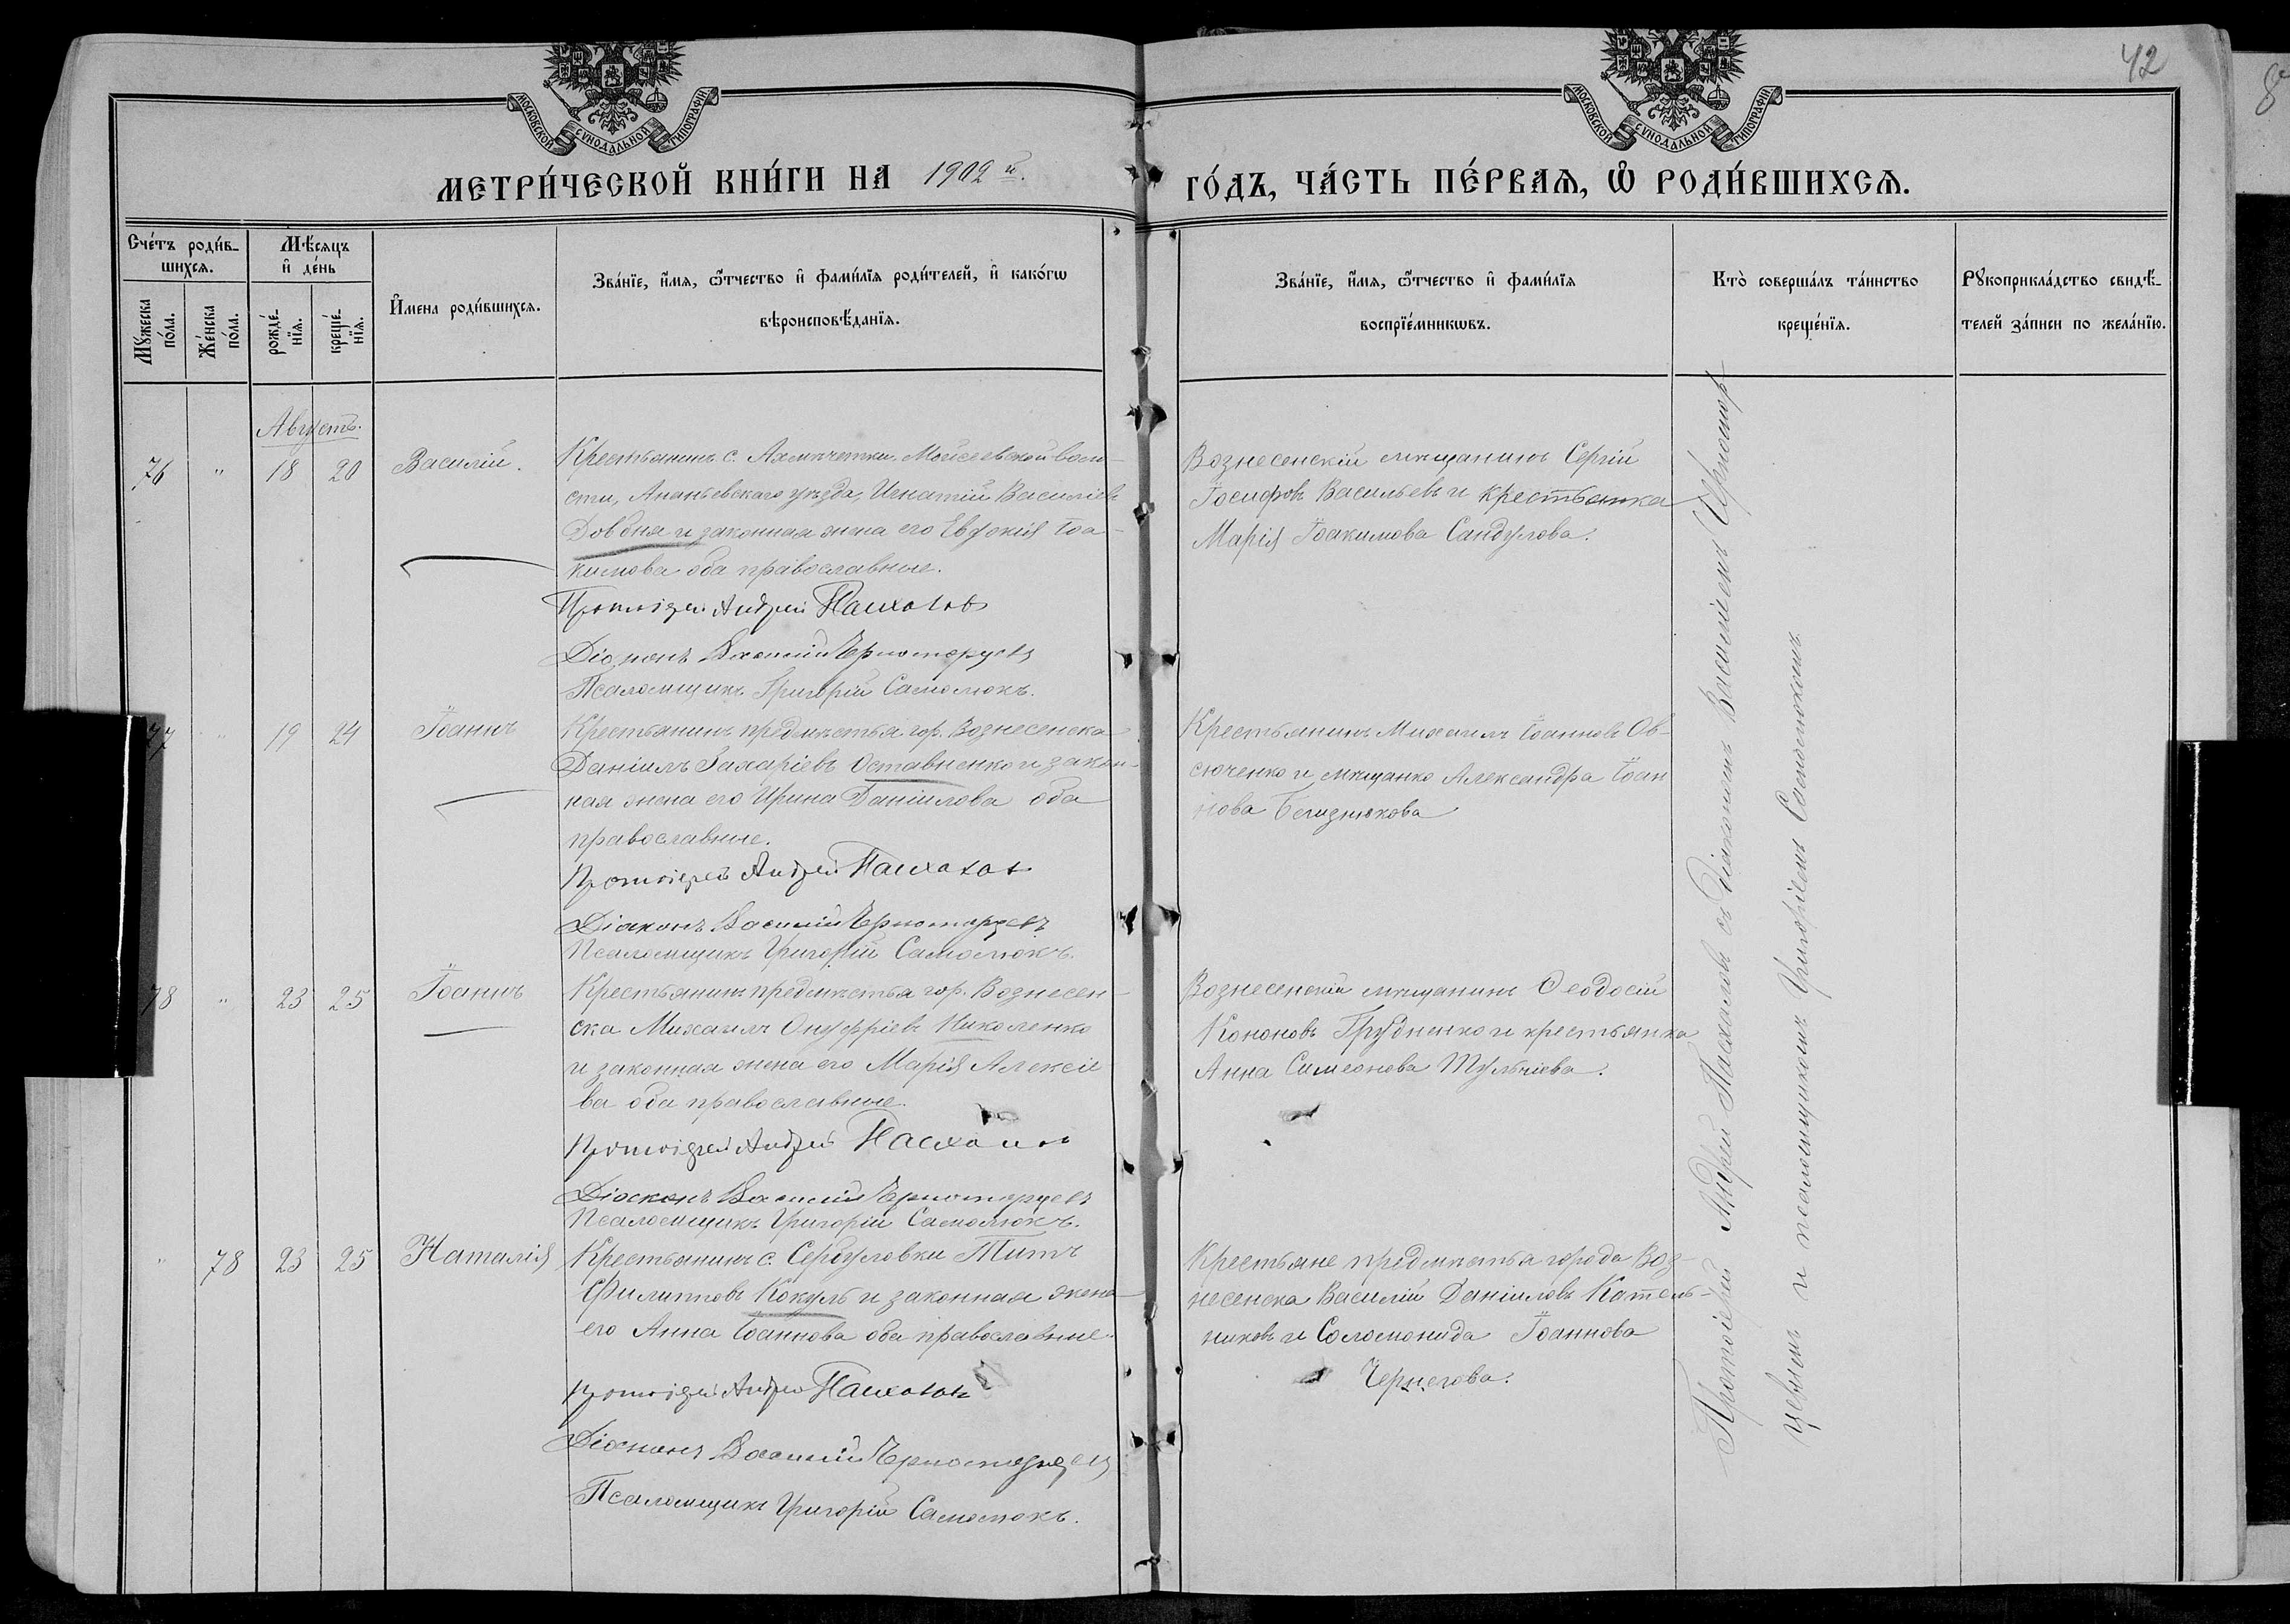 42
МОСКОВСКОЙ СѴНОДАЛЬНОЙ ТИПОГРАФІИ
МОСКОВСКОЙ СѴНОДАЛЬНОЙ ТИПОГРАФІИ
МЕТРИ́ЧЕСКОЙ КНИ́ГИ НА 1902й.
ГО́ДЪ, ЧА́СТЬ ПЕ́РВАЯ, Ѡ҆ РОДИ́ВШИХСЯ.
Сче́тъ роди́в-
шихся.
Мꙋ́жеска по́ла.
Же́нска по́ла.
Мѣ́сяцъ
и҆ де́нь
рожде́-
нїя.
креще́-
нїя.
И҆мена роди́вшихся.
Зва́нїе, и҆́мя, ѻ҆́тчество и҆ фами́лїя роди́телей, и҆ како́гѡ
вѣроисповѣ́данїя.
Зва́нїе, и҆́мя, ѻ҆́тчество и҆ фами́лїя
воспрїе́мникѡвъ.
Кто̀ соверша́лъ та́инство
креще́нїя.
Рꙋкоприкла́дство свидѣ́-
телей за́писи по жела́нїю.
Августъ.
76 " 18 20 Василій.
Крестьянинъ с. Ахмечетки Мойсеевской воло-
сти, Ананьевскаго уѣзда, Игнатій Василіевъ
Довбня и законная жена его Евдокія Іоа-
кимова оба православные.
Протоіерей Андрей Пасхаловъ
Діаконъ Василій Черноморцевъ
Псаломщикъ Григорій Самолюкъ.
Вознесенскій мѣщанинъ Сергій
Іосифовъ Васильевъ и крестьянка
Марія Іоакимова Сандулова.
77 " 19 24 Іоаннъ
Крестьянинъ предмѣстья гор. Вознесенска
Даніилъ Захаріевъ Оставненко и закон-
ная жена его Ирина Даніилова оба
православные.
Протоіерей Андрей Пасхалов
Діаконъ Василій Черноморцевъ
Псаломщикъ Григорій Самолюкъ.
Крестьянинъ Михаилъ Іоанновъ Ов-
сюченко и мѣщанка Александра Іоан
нова Близнюкова
78 " 23 25 Іоаннъ
Крестьянинъ предмѣстья гор. Вознесен-
ска Михаилъ Онуфріевъ Николенко
и законная жена его Марія Алексіе
ва оба православные.
Протоіерей Андрей Пасхалов
Діаконъ Василій Черноморцевъ
Псаломщикъ Григорій Самолюкъ.
Вознесенскій мѣщанинъ Ѳеодосій
Кононовъ Грудненко и крестьянка
Анна Симеонова
" 78 23 25 Наталія
Крестьянинъ с. Сербуловки Титъ
Филипповъ Кокуль и законная жена
его Анна Іоаннова оба православные.
Протоіерей Андрей Пасхаловъ
Діаконъ Василій Черноморцевъ
Псаломщикъ Григорій Самолюкъ.
Крестьяне предмѣстья города Воз-
несенска Василій Даніиловъ Катель-
никовъ и Соломонида Іоаннова
Чернегова.
Протоіерей Андрей Пасхаловъ съ діакономъ Василіемъ Черномор-
цевымъ и псаломщикомъ Григоріемъ Самолюкомъ